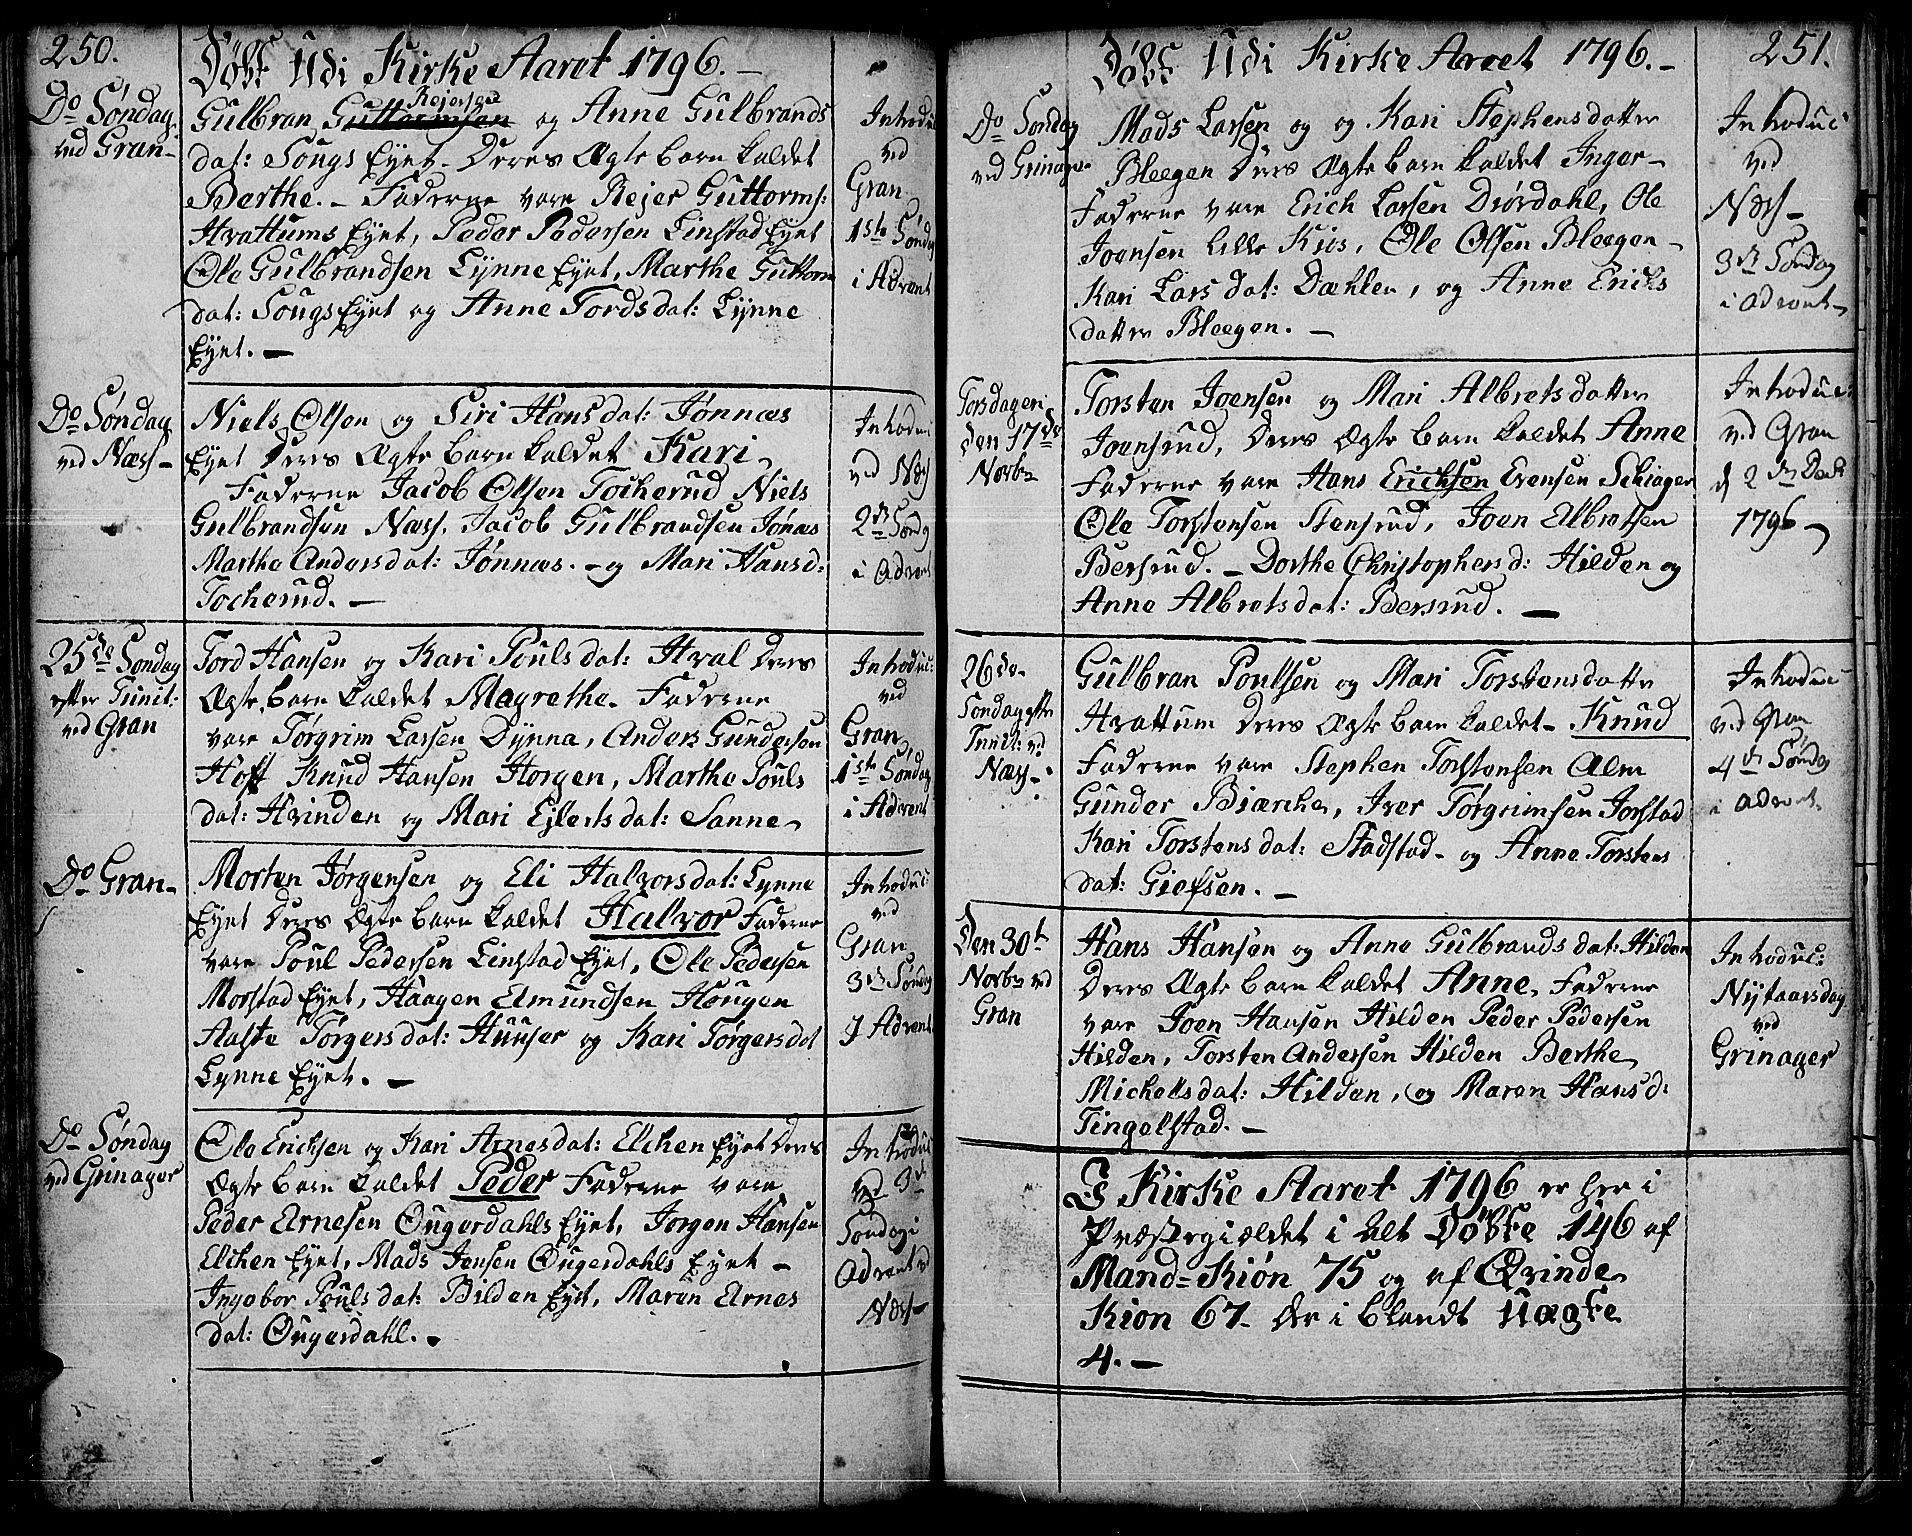 250.
Døbt Udi Kirke Aaret 1796.-
Do Søndag
ved Gran-
Rejersen
Gulbran Guttormsen og Anne Gulbrands
dat: Sougs Eyet. Deres Ægte barn kaldet
Berthe.- Faderne vare Rejer Guttorms:
Hvattums Eyet, Peder Pedersen Linstad Eyet
Ole Gulbrandsen Lynne Eyet, Marthe Guttorm
dat: Sougs Eyet og Anne Tordsdat: Lynne
Eyet.-
Introduc
ved
Gran
1ste Søndag
i Advent
Do Søndag
ved Næss-
Niels Olsen og Siri Hansdat: Jønnæs
Eyet Deres Ægte barn kaldet Kari-
Faderne Jacob Olsen Tocherud Niels
Gulbrandsen Næss, Jacob Gulbrandsen Jønæs
Marthe Andersdat: Jønnæs.- og Mari Hansd:
Tocherud.-
Introduc
ved Næss
2den Søndg
i Advent
25de Søndag
efter Trinit:
ved Gran
Tord Hansen og Kari Poulsdat: Hval Deres
Ægte barn kaldet Magrethe. Faderne
vare Tørgrim Larsen Dynna, Anders Gundersen
Hoff Knud Hansen Horgen, Marthe Pouls
dat: Hvinden og Mari Ejlertsdat: Sanne-
Introduc:
ved
Gran
1ste Søndag
i Advent
Do Gran-
Morten Jørgensen og Eli Halvorsdat: Lynne
Eyet Deres Ægte barn kaldet Halvor Faderne
vare Poul Pedersen Linstad Eyet, Ole Pedersen
Morstad Eyet, Haagen Elmundsen Hougen
Aaste Tørgersdat: Huuser og Kari Tørgersdat
Lynne Eyet.-
Introduc:
ved
Gran
3die Søndag
J Advent
Do Søndag
ved Grinager
Ole Ericksen og Kari Arnesdat: Elchen Eyet Deres
Ægte barn kaldet Peder Faderne vare
Peder Arnesen Ougerdahls Eyet, Jørgen Hansen
Elchen Eyet, Mads Jensen Ougerdahls Eyet-
Ingebor Poulsdat: Bilden Eyet, Maren Arnes
dat: Ougerdahl.-
Introduc
ved 3die
Søndag i
Advent vd
Næss-
251.
Døbt Udi Kirke Aroet 1796.-
Do Søndag
ved Grinager
Mads Larsen og og Kari Stephensdatter
Bleegen Deres Ægte barn kaldet Inger-
Faderne vare Erich Larsen Diørdahl, Ole
Joensen Lille Kios, Ole Olsen Bleegen-
Kari Larsdat: Dæhlen, og Anne Ericks
datter Bleegen.-
Introduc
ved
Næss-
3die Søndag
i advent-
Torsdagen
den 17de
Novbr
Torsten Joensen og Mari Albretsdatter
Joensrud, Deres Ægte barn kaldet Anne
Faderne vare Hans Ericksen Evensen Schiager
Ole Torstensen Stensrud, Joen Elbretsen
Bersrud.- Dorthe Christophersd: Hilden og
Anne Albretsdat: Bersrud.-
Introduc:
ved Gran
d 2den Decbr
1796-
26de
Søndag efter
Trinit: vd
Næss-
Gulbran Poulsen og Mari Torstensdatter
Hvattum Deres Ægte barn kaldet- Knud
Faderne vare Stephen Torstensen Alm
Gunder Biærche, Iver Tørgrimsen Jorstad
Kari Torstensdat: Stadstad- og Anne Torstens
dat: Giefsen.-
Introduc
ved Gran
4de Søndag
i advent.
Den 30te
Novbr ved
Gran
Hans Hansen og Anne Gulbrandsdat: Hilden
Deres Ægte barn kaldet Anne, Faderne
vare Joen Hansen Hilden Peder Pedersen
Hilden, Torsten Andersen Hilden Berthe
Michelsdat: Hilden, og Maren Hansd:
Tingelstad.-
Introduc:
Nytaarsdag
ved
Grinager
I Kirke Aaret 1796 er her i
Præstegiældet i alt Døbte 146 af
Mand-Kiøn 75 og af Qvinde
Kion 67- der i blandt uægte
4.-